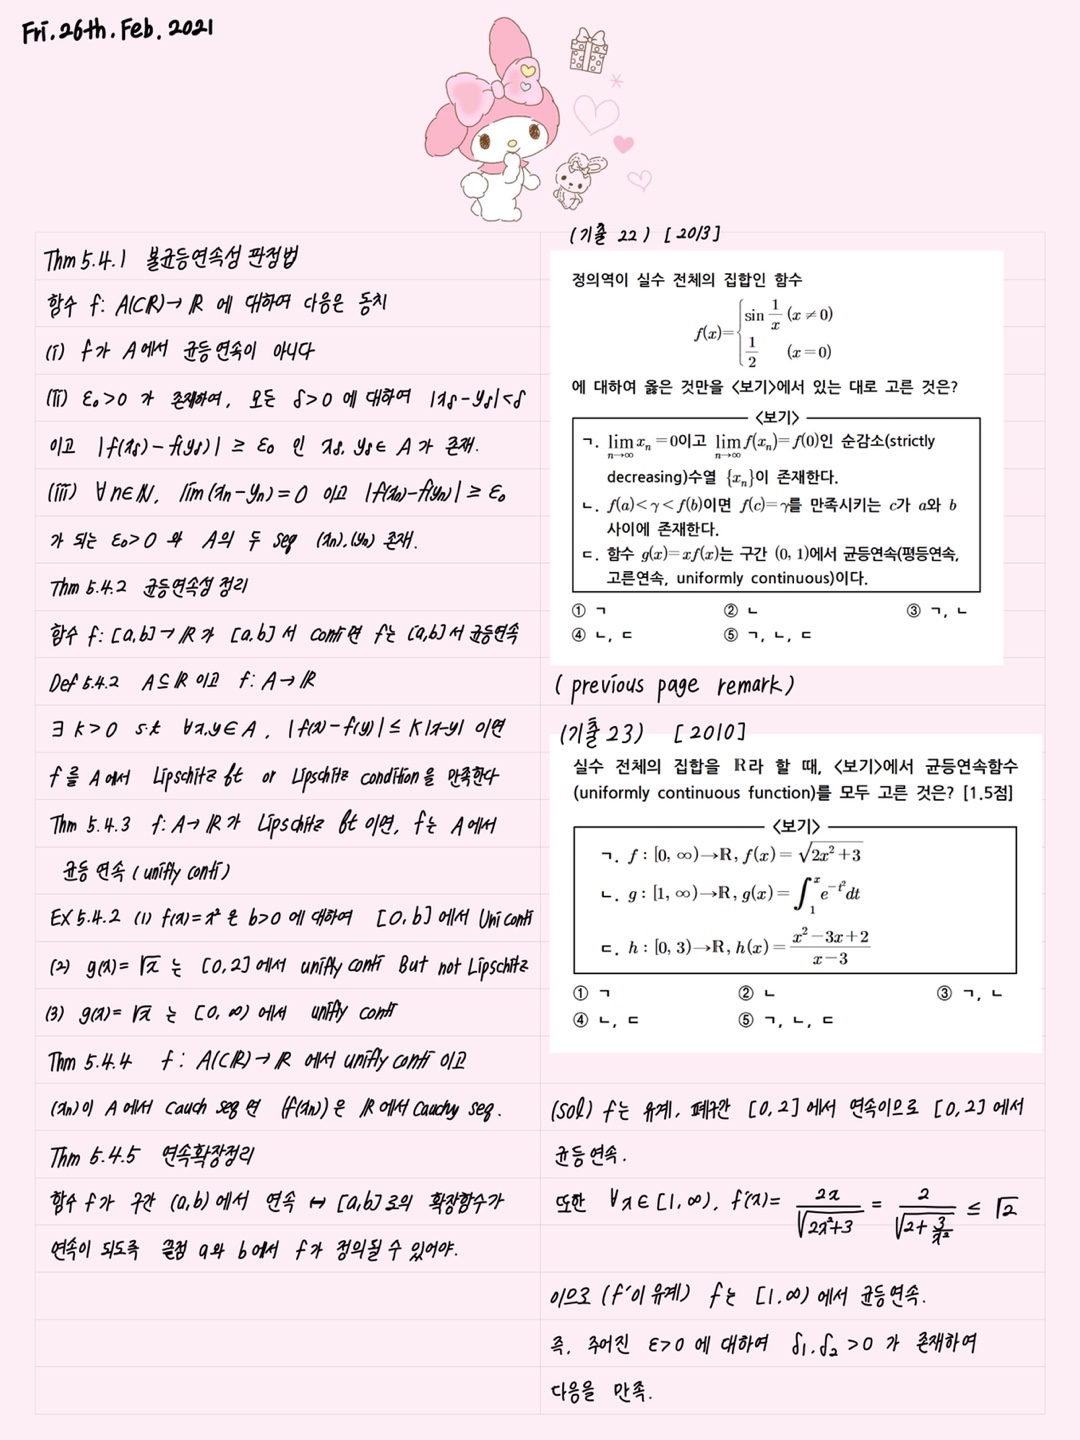 Fri. 26th. Feb. 2021
Thm 5.4.1 불균등연속성 판정법
함수 f: A(⊂ℝ)→ℝ 에 대하여 다음은 동치
(i) f가 A에서 균등연속이 아니다
(ii) ε₀>0 가 존재하여, 모든 δ>0 에 대하여 |xδ-yδ|<δ
이고 |f(xδ)-f(yδ)| ≥ ε₀ 인 xδ, yδ ∈ A 가 존재.
(iii) ∀n∈ℕ, lim(xn-yn)=0 이고 |f(xn)-f(yn)| ≥ ε₀
가 되는 ε₀>0 와 A의 두 seq (xn),(yn) 존재.
Thm 5.4.2 균등연속성 정리
함수 f: [a,b]→ℝ가 [a,b]서 conti면 f는 [a,b]서 균등연속
Def 5.4.2 A⊆ℝ 이고 f: A→ℝ
∃ K>0 s.t ∀x,y∈A, |f(x)-f(y)| ≤ K|x-y| 이면
f를 A에서 Lipschitz ft or Lipschitz condition을 만족한다
Thm 5.4.3 f: A→ℝ가 Lipschitz ft 이면, f는 A에서
균등 연속 (unifly conti)
EX 5.4.2 (1) f(x)=x² 은 b>0 에 대하여 [0,b]에서 Uni conti
(2) g(x)=√x 는 [0,2]에서 unifly conti But not Lipschitz
(3) g(x)=√x 는 [0,∞) 에서 unifly conti
Thm 5.4.4 f: A(⊂ℝ)→ℝ 에서 unifly conti 이고
(xn)이 A에서 Cauch seq 면 (f(xn))은 ℝ에서 Cauchy seq.
Thm 5.4.5 연속확장정리
함수 f가 구간 (a,b)에서 연속 ↔ [a,b]로의 확장함수가
연속이 되도록 끝점 a와 b에서 f가 정의될 수 있어야.
(기출 22) [2013]
정의역이 실수 전체의 집합인 함수
f(x)={ sin 1/x (x≠0)
1/2 (x=0)
에 대하여 옳은 것만을 <보기>에서 있는 대로 고른 것은?
<보기>
ㄱ. lim n→∞ xn=0이고 lim n→∞ f(xn)=f(0)인 순감소(strictly
decreasing)수열 {xn}이 존재한다.
ㄴ. f(a)<γ<f(b)이면 f(c)=γ를 만족시키는 c가 a와 b
사이에 존재한다.
ㄷ. 함수 g(x)=xf(x)는 구간 (0, 1)에서 균등연속(평등연속,
고른연속, uniformly continuous)이다.
① ㄱ ② ㄴ ③ ㄱ, ㄴ
④ ㄴ, ㄷ ⑤ ㄱ, ㄴ, ㄷ
(previous page remark)
(기출 23) [2010]
실수 전체의 집합을 ℝ라 할 때, <보기>에서 균등연속함수
(uniformly continuous function)를 모두 고른 것은? [1.5점]
<보기>
ㄱ. f : [0, ∞)→ℝ, f(x)=√(2x²+3)
ㄴ. g : [1, ∞)→ℝ, g(x)=∫₁ˣ e^(-t²)dt
ㄷ. h : [0, 3)→ℝ, h(x)=(x²-3x+2)/(x-3)
① ㄱ ② ㄴ ③ ㄱ, ㄴ
④ ㄴ, ㄷ ⑤ ㄱ, ㄴ, ㄷ
(sol) f는 유계, 폐구간 [0,2]에서 연속이므로 [0,2]에서
균등연속.
또한 ∀x∈[1,∞), f'(x)= 2x/√(2x²+3) = 2/√(2+3/x²) ≤ √2
이므로 (f'이 유계) f는 [1,∞)에서 균등연속.
즉, 주어진 ε>0 에 대하여 δ₁,δ₂>0 가 존재하여
다음을 만족.